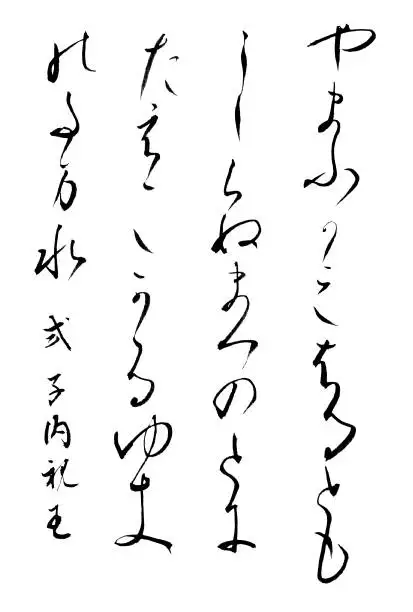 やまふかみはるとも
しらぬまつのとに
たえ〲かかるゆき
のた万水 式子内親王